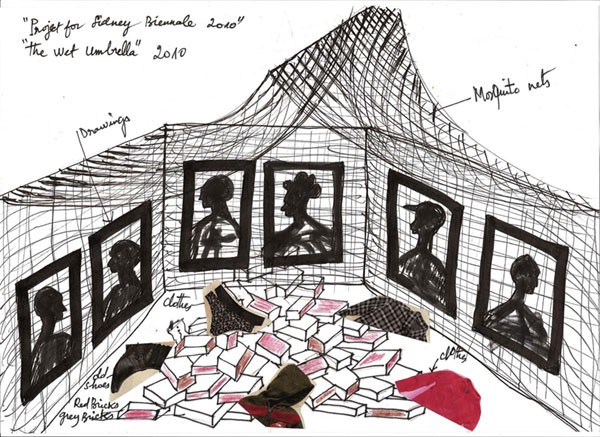 "Projet for Sidney Biennale 2010"
"The Wet Umbrella" 2010
Mosquito nets
Drawings
Clothes
Clothes
old
Shoes
Red Bricks
grey Bricks